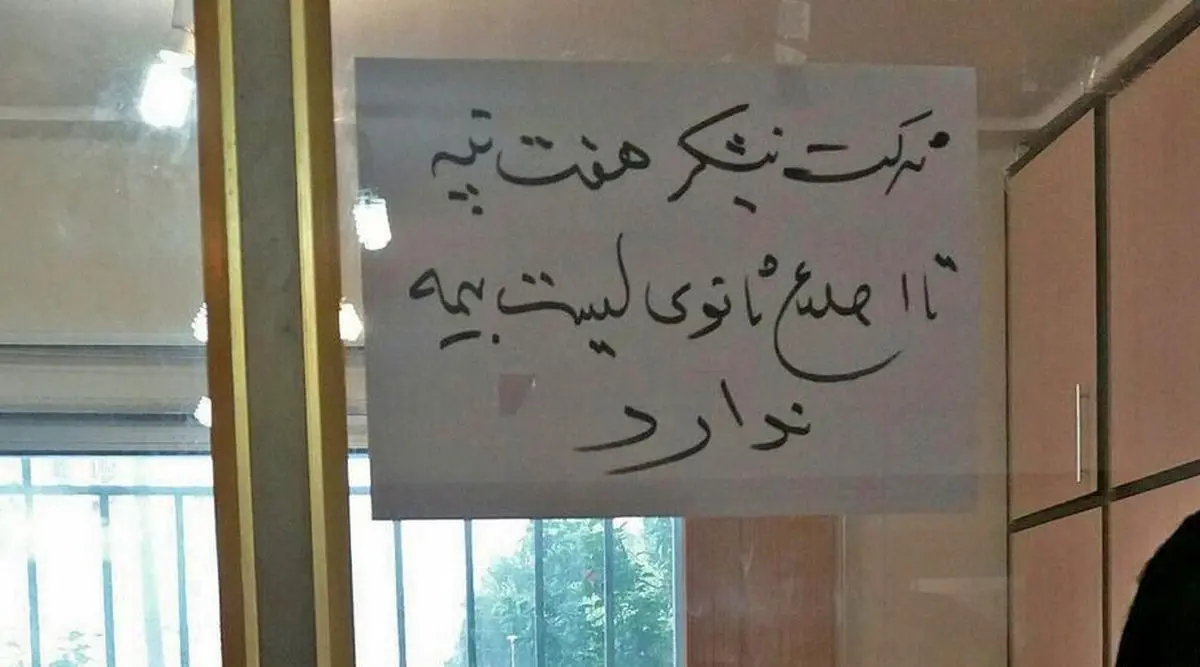 شرکت نیشکر هفت تپه
تا اطلاع ثانوی لیست بیمه
ندارد